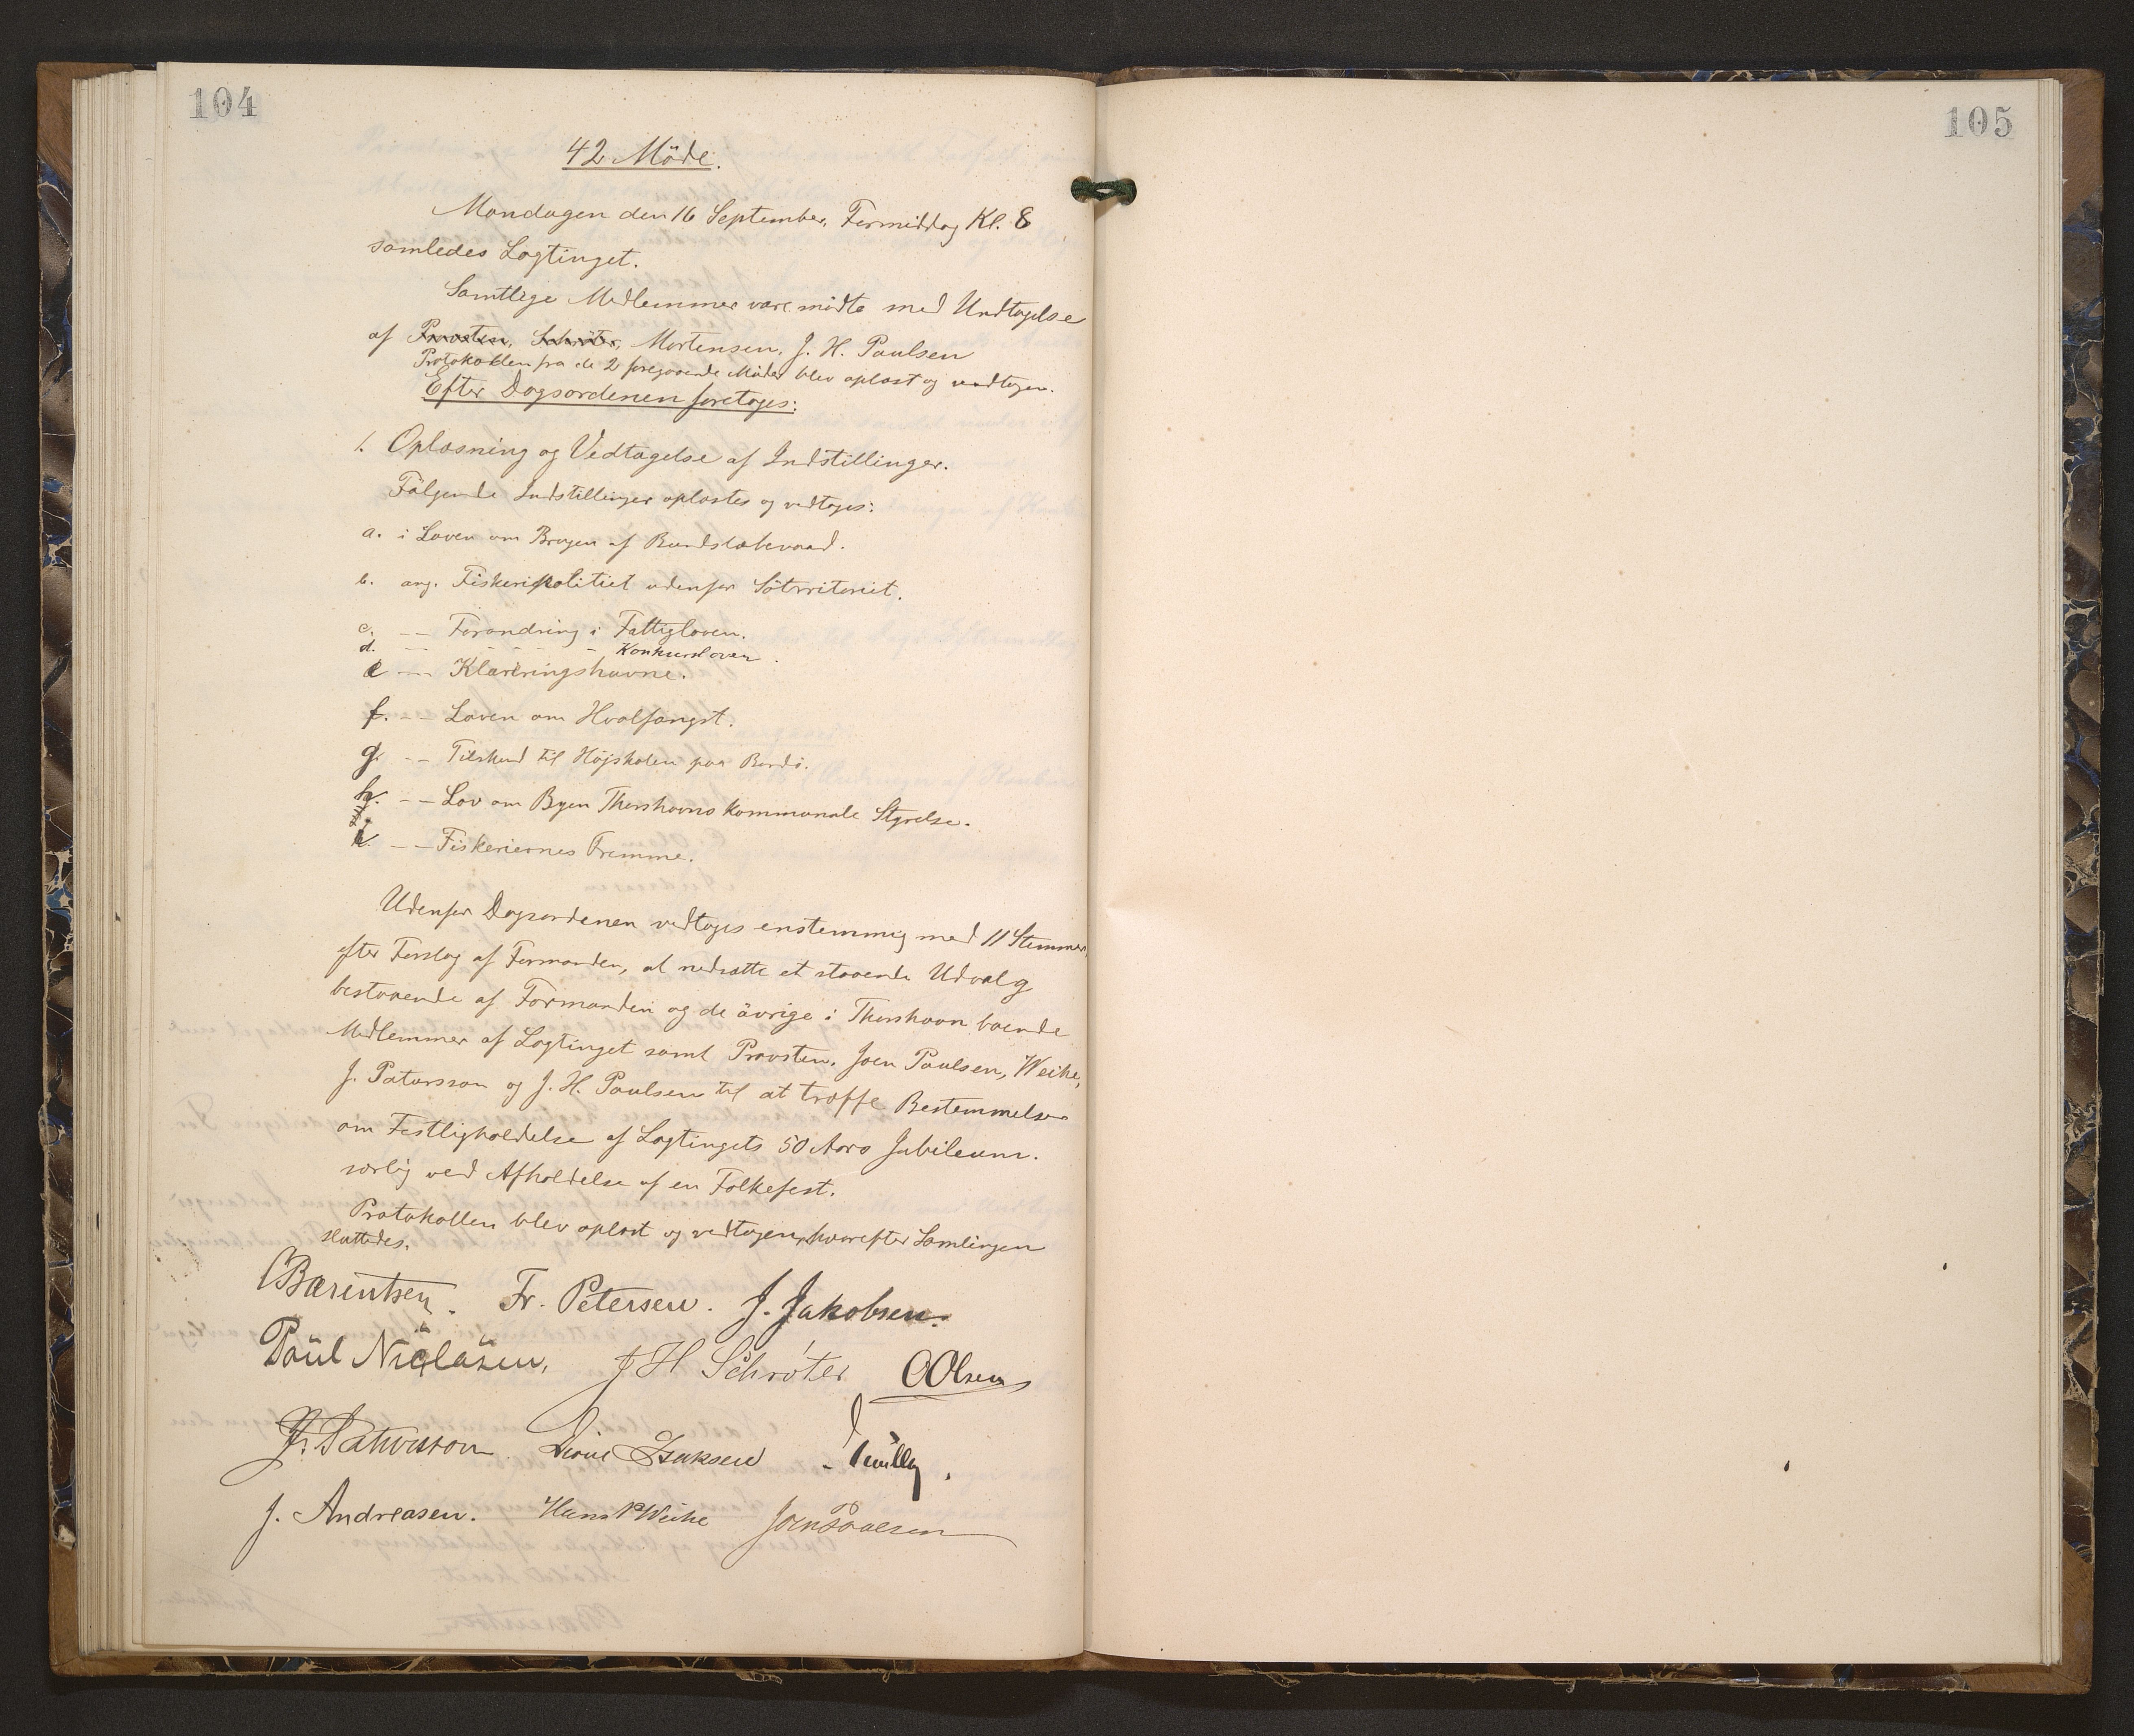 104
42 Möde.
Mandagen den 16 September, Formiddag Kl. 8
samledes Lagtinget.
Samtlige Medlemmer vare mödte med Undtagelse
af Provsten, Schröter, Mortensen, J. H. Poulsen
Protokollen fra de 2 foregaaende Möder blev oplæst og vedtagen.
Efter Dagsordenen foretoges:
1. Oplæsning og Vedtagelse af Indstillinger.
Fölgende Indstillinger oplæstes og vedtoges:
a. i Loven om Brugen af Bundslæbevaad.
b. ang. Fiskeripolitiet udenfor Söterritoriet.
c. -- Forandring i Fattigloven.
d. -- - - - - Konkursloven.
e -- Klareringshavne.
f. -- Loven om Hvalfangst.
g. -- Tilskud til Højskolen paa Bordö.
h. -- Lov om Byen Thorshavns kommunale Styrelse.
i. -- Fiskeriernes Fremme.
Udenfor Dagsordenen vedtoges enstemmig med 11 Stemmer,
efter Forslag af Formanden, at nedsætte et staaende Udvalg
bestaaende af Formanden og de övrige i Thorshavn boende
Medlemmer af Lagtinget samt Provsten, Joen Poulsen, Weihe,
J. Patursson og J. H. Poulsen til at træffe Bestemmelser
om Festligholdelse af Lagtingets 50 Aars Jubileum.
særlig ved Afholdelse af en Folkefest.
Protokollen blev oplæst og vedtagen, hvorefter Samlingen
sluttedes.
CBærentsen. Fr. Petersen. J. Jakobsen.
Poül Niclasen, J H Schröter OOlsen
J. Patursson. Isaksen
J. Andreasen. Hans P Weihe Joen Poulsen
105